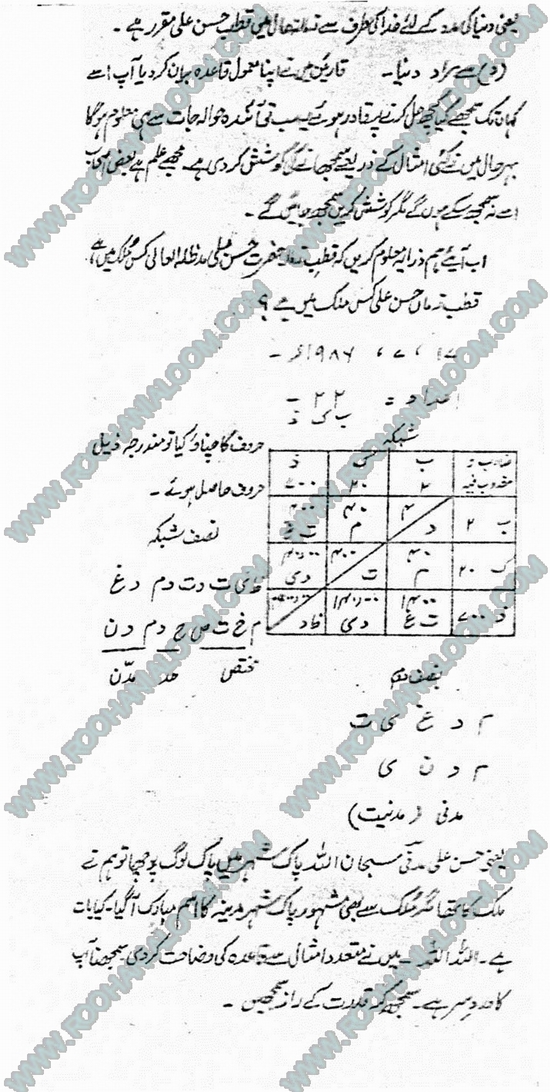 یعنی دنیا کی مدد کے لئے خدا کی طرف سے فی الحال قطب حسن علی مقرر ہے ۔
سے مراد دنیا ۔ قارئین میں نے اپنا معمول قاعدہ بیان کر دیا آپ اسے
کہاں تک سمجھے کیا کچھ حل کرنے پر قادر ہوئے یہ سب تو آئندہ حوالہ جات سے ہی معلوم ہوگا
بہرحال میں نے کئی امثال کے ذریعے سمجھانے کی کوشش کر دی ہے۔ مجھے علم ہے بعض اصحاب
اسے نہ سمجھ سکے ہوں گے مگر کوشش کریں سمجھ جائیں گے ۔
اب آیئے ہم ذرا یہ معلوم کریں کہ قطب حضرت حسن علی مدظلہ العالی کس ملک میں ہے
قطب زماں حسن علی کس ملک میں ہے ؟
۱۹۸۶
اعداد = ۲۲ ۔
ب ک ذ
شبکہ
حروف کا چناؤ کیا تو مندرجہ ذیل
حروف حاصل ہوئے ۔
نصف شبکہ
ب
۲
۲۰
۷۰۰
ب ۲
۴
د
۴۰
م
ت غ
ک ۲۰
۴۰
م
۴۰۰
ت
د ی
ذ ۷۰۰
۱۴۰۰
ت غ
د ی
ی ت د ت د م د غ
م خ ت ص ح د م د ن
مختص حد مدّن
نصف دوم
م د غ ی ت
م د ن ی
مدنی ( مدنیت )
یعنی حسن علی مدنی سبحان اللہ پاک شہر میں پاک لوگ پوچھا تو ہم نے
ملک کا تھا مگر ملک سے بھی مشہور پاک شہر مدینہ کا اسم مبارک آ گیا۔ کیا بات
ہے ۔ اللہ اللہ ۔ میں نے متعدد امثال سے قاعدہ کی وضاحت کر دی سمجھنا آپ
کا درد سر ہے ۔ سمجھ کر قدرت کے راز سمجھیں ۔
WWW.ROOHANIALOOM.COM